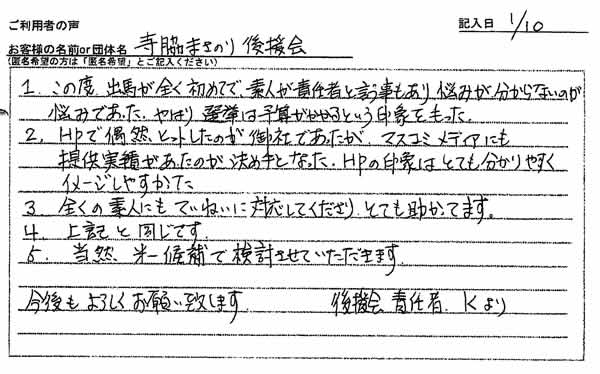 ご利用者の声
記入日 1/10
お客様の名前or団体名 寺脇まさのり後援会
(匿名希望の方は「匿名希望」とご記入ください)
1. この度、出馬が全く初めてで、素人が責任者と言う事もあり悩みが分からないのが
悩みであった. やはり選挙は予算がかかるという印象をもった.
2. HPで偶然ヒットしたのが御社であたが、マスコミメディアにも
提供実績があたのが決め手となった. HPの印象はとても分かりやすく
イメージしやすかた
3. 全くの素人にもていねいに対応してくださり、とても助かてます。
4. 上記と同じです
5. 当然、第一候補で検討させていただきます.
今後もよろしくお願い致します 後援会責任者. Kより